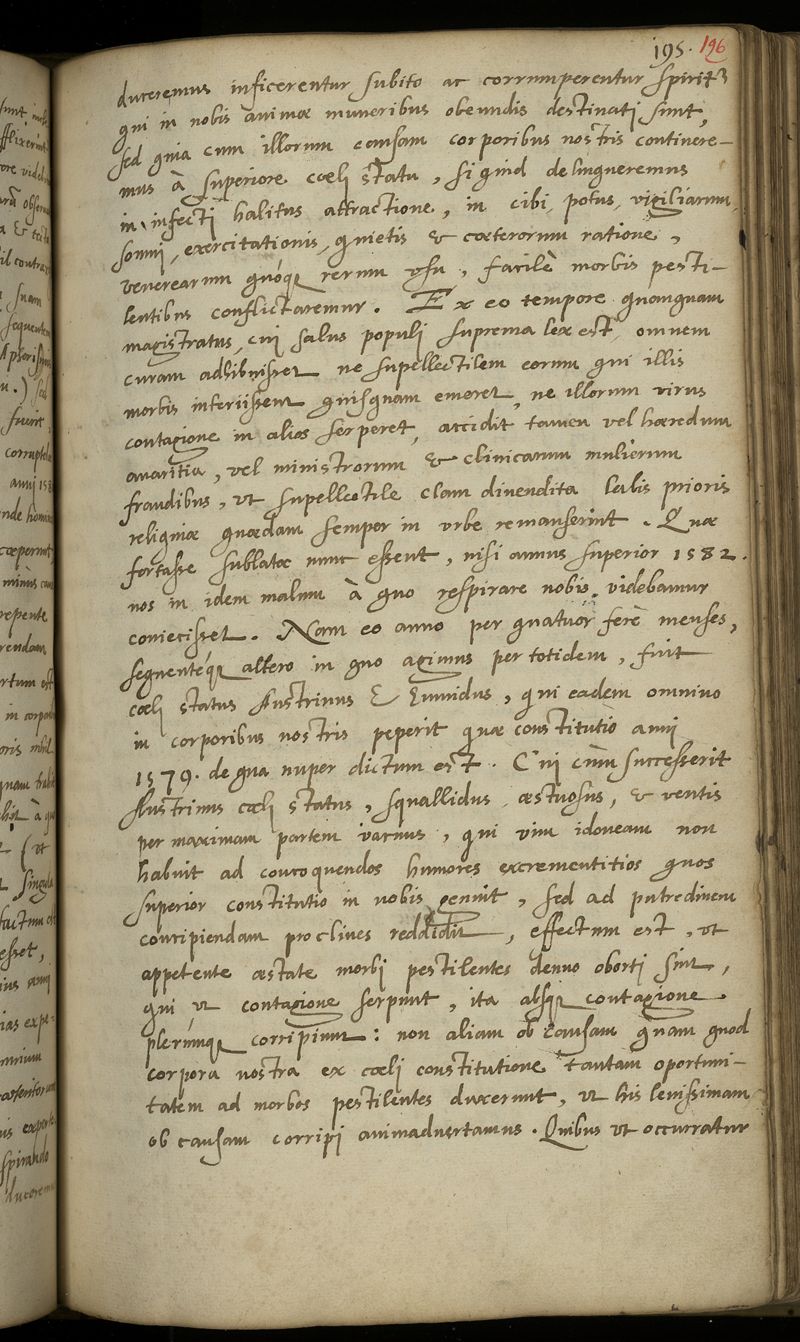 195. 196
duceremus inficerentur subito ac corrumperentur spirit9
qui in nobis animae muneribus obeundis destinati sunt,
sed quia cum illorum causam corporibus nostris contineremus
mus à superiore caeli statu, si quid delinqueremus
in infecti halitus attractione, in cibi, potus, vigiliarum,
somni, exercitationis, quietis & caeterorum ratione,
venerearum quóq; rerum usu, facilè morbis pesti-
lentibus conflictaremur. Ex eo tempore quamquam
magistratus, cui salus populi suprema lex est, omnem
curam adhibuisset ne supellectilem eorum qui illis
morbis interiissent quisquam emeret, ne illorum virus
contagione in alios serperet, accidit tamen vel haeredum
avaritia, vel ministrorum & clinicarum mulierum
fraudibus, ut supellectile clam divendita labis prioris
reliquiae quaedam semper in urbe remanserint. Quae
fortasse sublatae nunc essent, nisi annus superior 1582.
nos in idem malum à quo respirare nobis videbamur
coniecisset. Nam eo anno per quatuor ferè menses,
sequentéq; altero in quo agimus per totidem, fuit
caeli status Austrinus & humidus, qui eadem omnino
in corporibus nostris peperit quae constitutio anni
1579. de qua nuper dictum est. Cui cùm successerit
Austrinus caeli status, squallidus, aestuosus, & ventis
per maximam partem varius, qui vim idoneam non
habuit ad concoquendos humores excrementitios quos
superior constitutio in nobis genuit, sed ad putredinem
concipiendam proclives reddidit, effectum est, ut
appetente aestate morbi pestilentes denuo oborti sint,
qui ut contagione serpunt, ita absq; contagione
plerúnque corripiunt: non aliam ob causam quàm quod
corpora nostra ex caeli constitutione tantam oportuni-
tatem ad morbos pestilentes duxerunt, ut his levissimam
ob causam corripi animadvertamus. Quibus ut occurratur